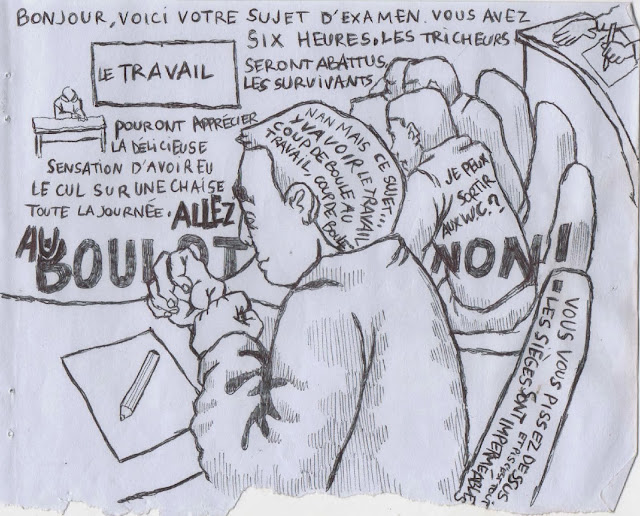 BONJOUR, VOICI VOTRE SUJET D'EXAMEN. VOUS AVEZ
SIX HEURES. LES TRICHEURS
SERONT ABATTUS
LES SURVIVANTS
LE TRAVAIL
POURONT APPRÉCIER
LA DÉLICIEUSE
SENSATION D'AVOIR EU
LE CUL SUR UNE CHAISE
TOUTE LA JOURNÉE. ALLEZ
AU BOULOT
NAN MAIS CE SUJET...
Y VA VOIR LE TRAVAIL
COUP DE BOULE AU
TRAVAIL, COUP DE BOULE
JE PEUX
SORTIR
AUX W.C.?
NON!
VOUS VOUS PISSEZ DESSUS
ET PIS C'EST TOUT
LES SIÈGES SONT IMPERMÉABLES